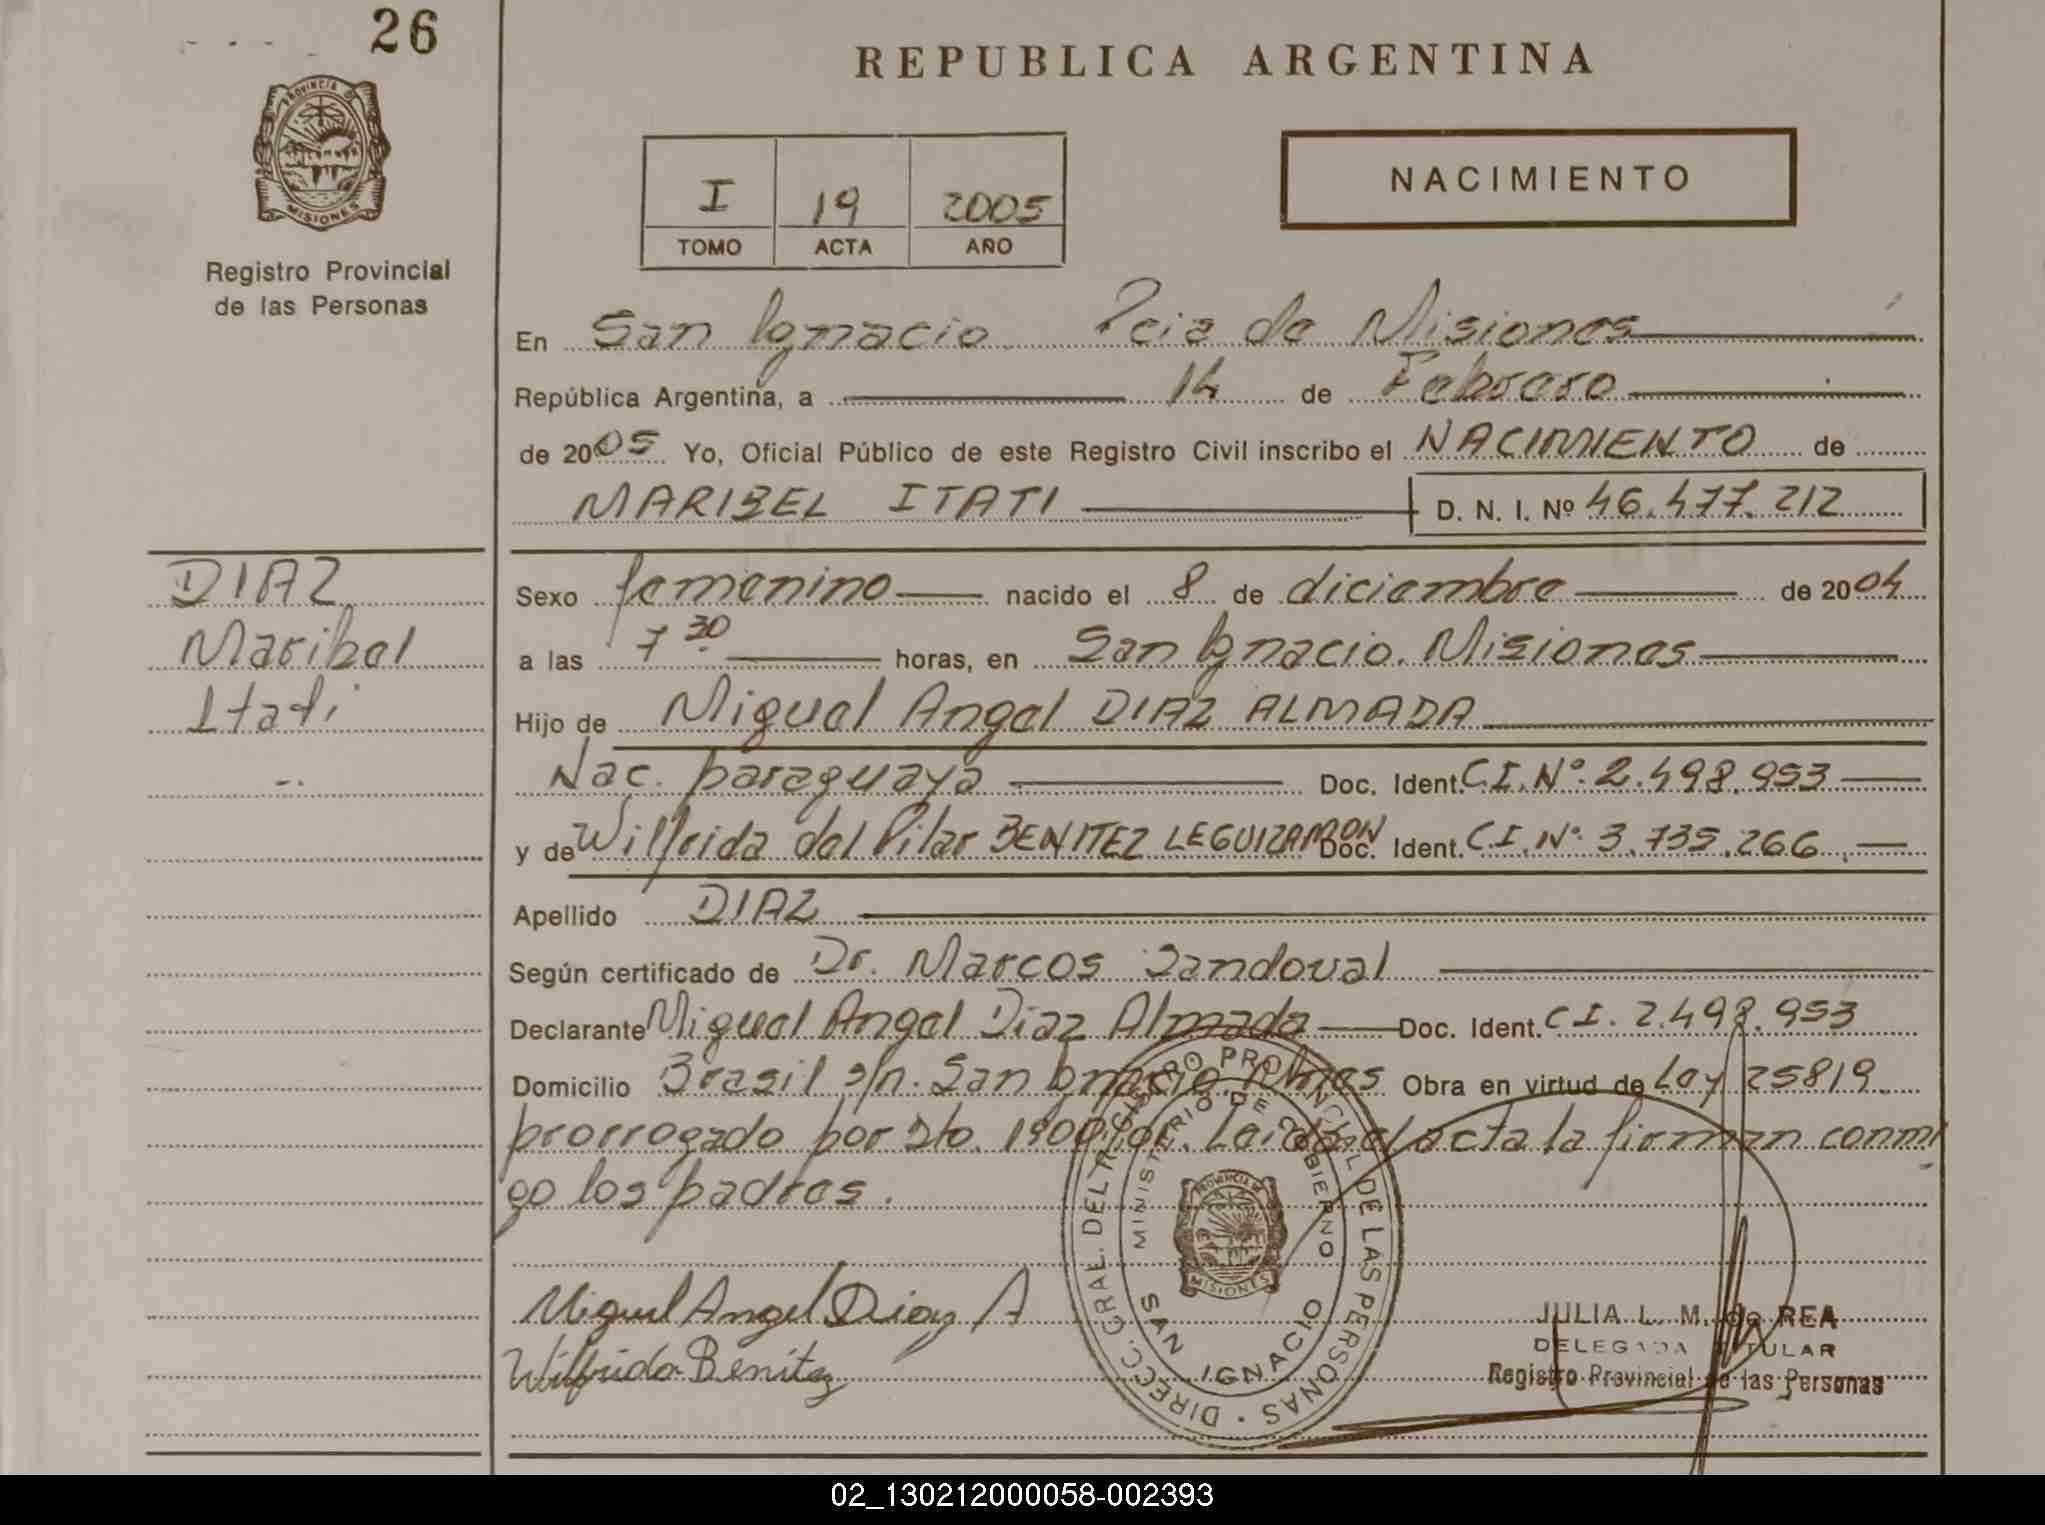 26
REPUBLICA ARGENTINA
PROVINCIA DE
MISIONES
Registro Provincial
de las Personas
I 19 2005
TOMO ACTA AÑO
NACIMIENTO
En San Ignacio. Pcia de Misiones
República Argentina, a 14 de Febrero
de 2005 Yo, Oficial Público de este Registro Civil inscribo el NACIMIENTO de
MARIBEL ITATI D. N. I. Nº 46.477.212
DIAZ
Maribel
Itati
Sexo femenino nacido el 8 de diciembre de 2004
a las 7 30 horas, en San Ignacio. Misiones
Hijo de Miguel Angel DIAZ ALMADA
Nac. paraguaya Doc. Ident. C.I. Nº. 2.498.953
y de Wilfrida del Pilar BENITEZ LEGUIZAMON Doc. Ident. C.I. Nº 3.735.266.
Apellido DIAZ
Según certificado de Dr. Marcos Sandoval
Declarante Miguel Angel Diaz Almada Doc. Ident. C I. 2.498.953
Domicilio Brasil s/n. San Ignacio Mnes Obra en virtud de Ley 25819
prorrogado por Dto. 1900/04. Leida el acta la firman conmi
go los padres.
Miguel Angel Diaz A
Wilfrida Benitez
DIRECC. GRAL. DEL REGISTRO PROVINCIAL DE LAS PERSONAS
MINISTERIO DE GOBIERNO
PROVINCIA DE
MISIONES
SAN IGNACIO
JULIA L. M. de REA
DELEGADA TITULAR
Registro Provincial de las Personas
02_130212000058-002393